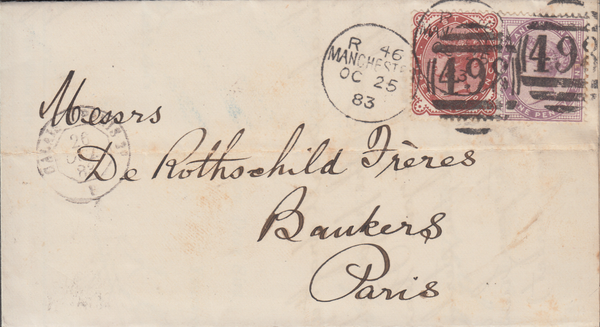 R 46
MANCHEST
OC 25
83
498
49
NE PEN
Messrs
De Rothschild Frères
Bankers
Paris